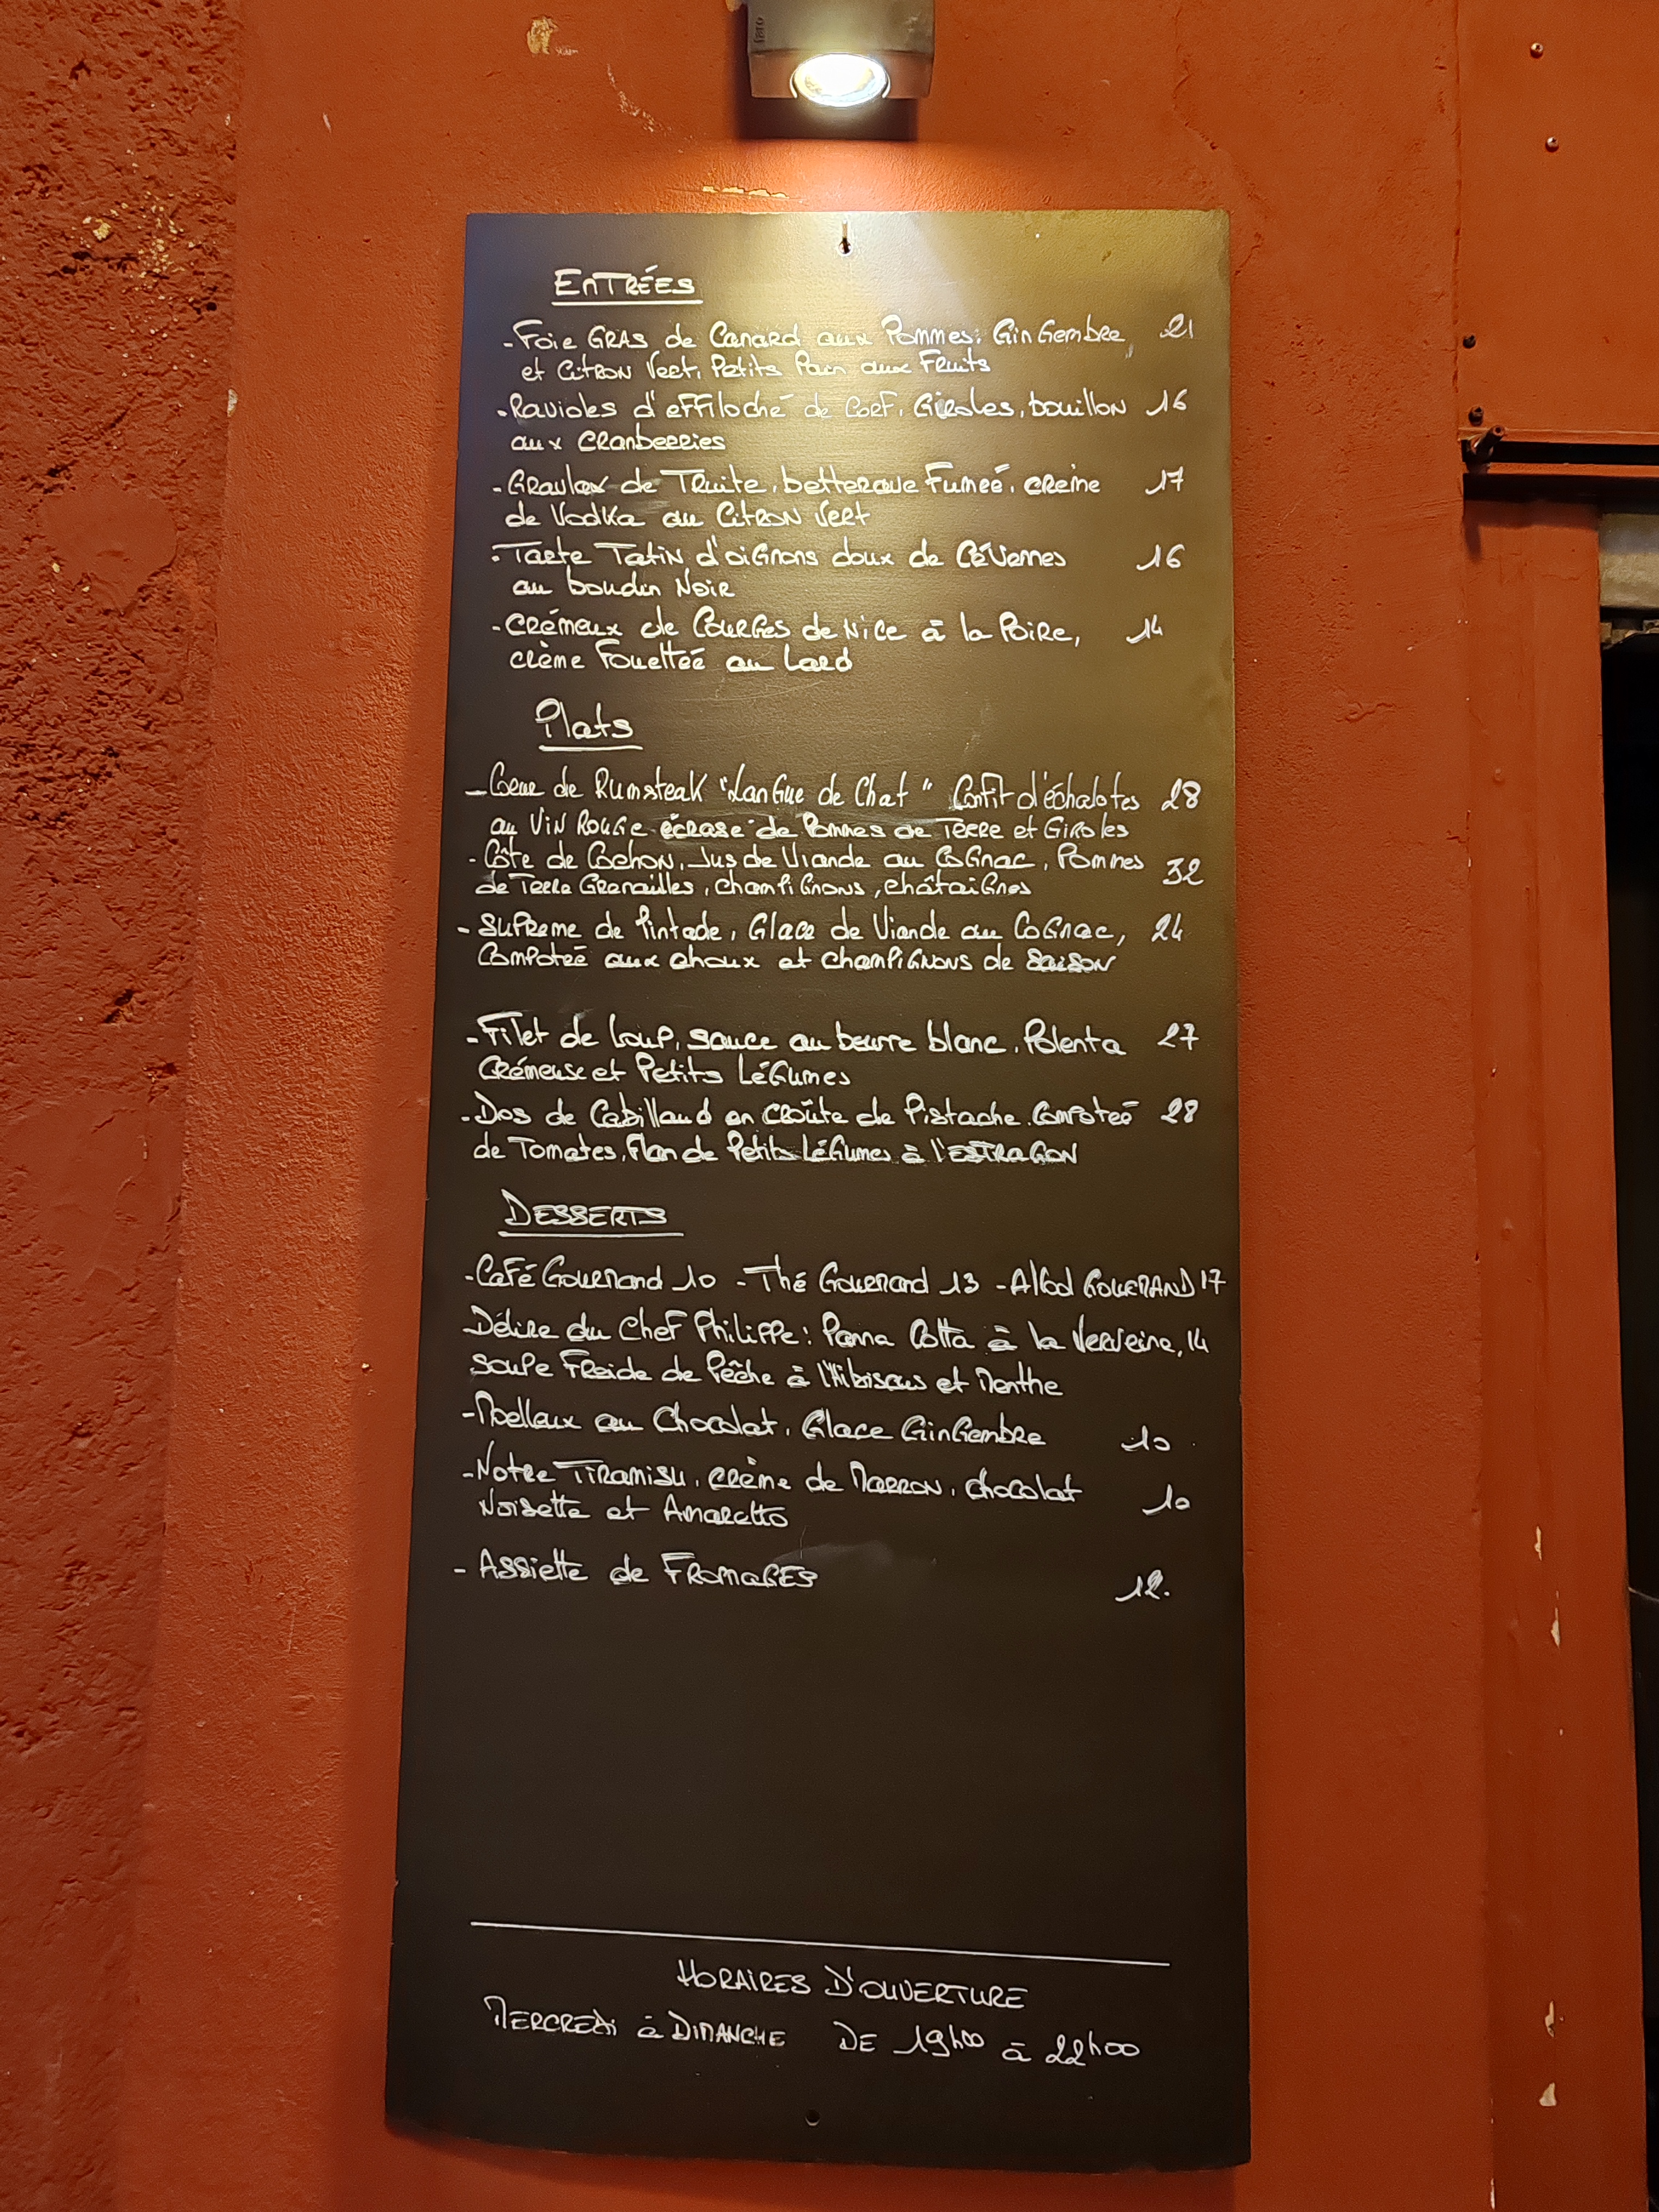 Entrées
-Foie Gras de Canard aux Pommes, Gingembre 21
et Citron Vert, Petits Pain aux Fruits
-Ravioles d'effiloché de Cerf, Giroles, bouillon 16
aux Cranberries
-Gravlax de Truite, betterave Fumée, crème 17
de Vodka au Citron Vert
-Tarte Tatin d'oignons doux de Cévennes 16
au boudin Noir
-Crémeux de Courges de Nice à la Poire, 14
crème Fouettée au Lard
Plats
-Coeur de Rumsteak "Langue de Chat" Confit d'échalotes 28
au Vin Rouge écrasé de Pommes de Terre et Giroles
-Côte de Cochon, Jus de Viande au Cognac, Pommes
de Terre Grenailles, champignons, châtaignes 32
-Suprême de Pintade, Glace de Viande au Cognac, 24
Compotée aux choux et champignons de Saison
-Filet de Loup, sauce au beurre blanc, Polenta 27
Crémeuse et Petits Légumes
-Dos de Cabillaud en croûte de Pistache, Compotée 28
de Tomates, Flan de Petits Légumes à l'ESTRAGON
DESSERTS
-Café Gourmand 10 -Thé Gourmand 13 -Alcool GOURMAND 17
Délire du Chef Philippe: Panna Cotta à la Verveine, 14
Soupe Froide de Pêche à l'Hibiscus et Menthe
-Moelleux au Chocolat, Glace Gingembre 10
-Notre Tiramisu, crème de Marron, chocolat
Noisette et Amaretto 10
-Assiette de FROMAGES 12.
HORAIRES D'OUVERTURE
MERCREDI à DIMANCHE DE 19h00 à 22h00